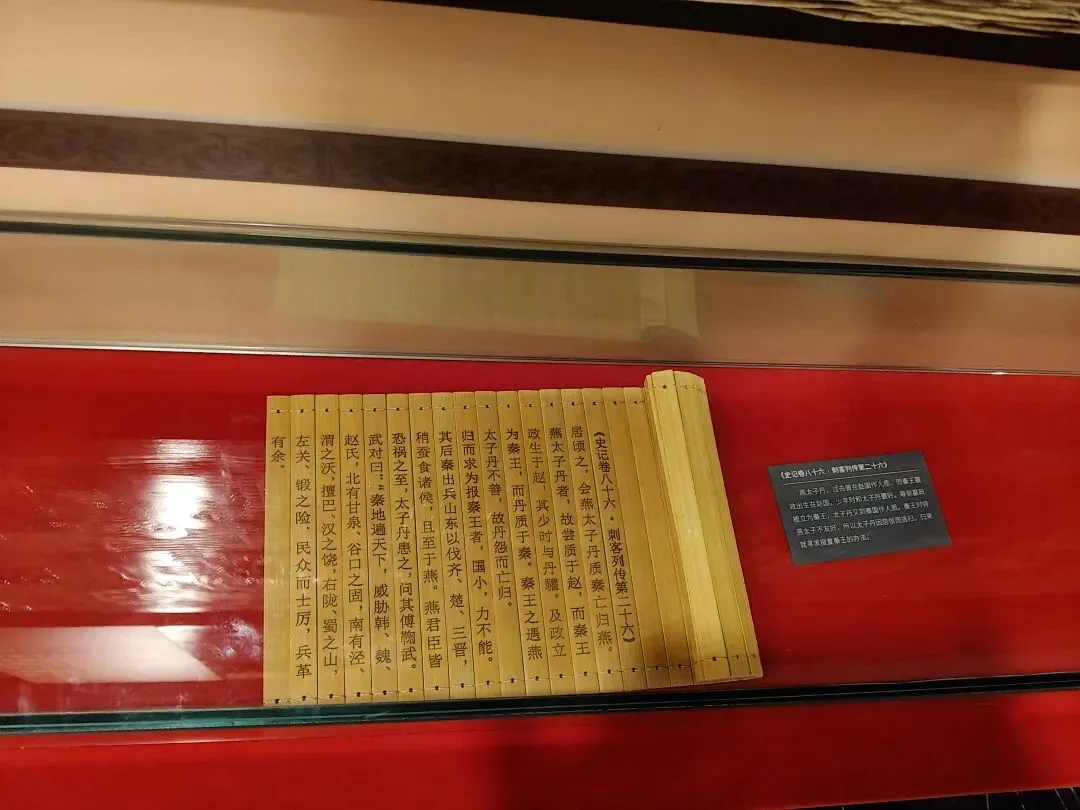 《史记卷八十六·刺客列传第二十六》
居顷之，会燕太子丹质秦亡归燕。
燕太子丹者，故尝质于赵，而秦王
政生于赵，其少时与丹驩。及政立
为秦王，而丹质于秦。秦王之遇燕
太子丹不善，故丹怨而亡归。
归而求为报秦王者，国小，力不能。
其后秦出兵山东以伐齐、楚、三晋，
稍蚕食诸侯，且至于燕。燕君臣皆
恐祸之至。太子丹患之，问其傅鞠武。
武对曰："秦地遍天下，威胁韩、魏、
赵氏，北有甘泉、谷口之固，南有泾、
渭之沃，擅巴、汉之饶，右陇、蜀之山，
左关、锻之险，民众而士厉，兵革
有余。
《史记卷八十六·刺客列传第二十六》
燕太子丹，过去曾在赵国作人质，而秦王嬴
政出生在赵国，少年时和太子丹要好。等到嬴政
被立为秦王，太子丹又到秦国作人质。秦王对待
燕太子不友好，所以太子丹因怨恨而逃归。归来
就寻求报复秦王的办法。